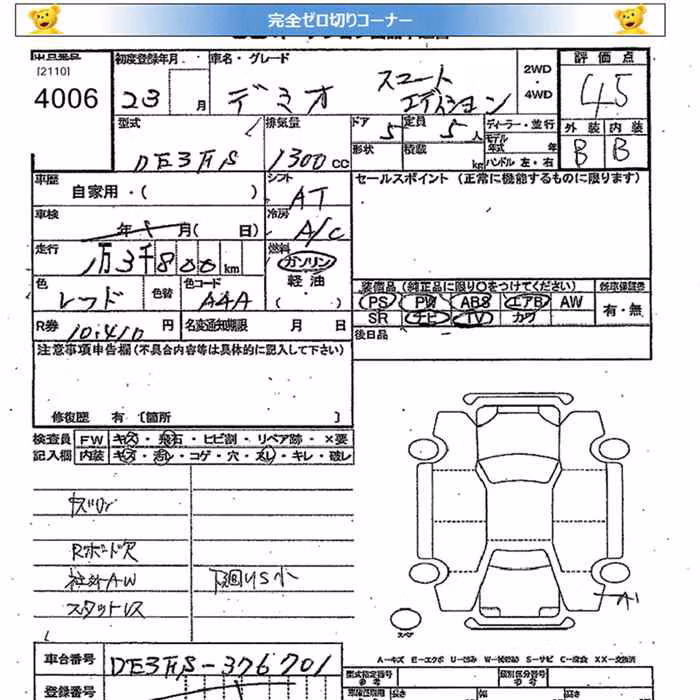 完全ゼロ切りコーナー
[2110]
4006
初度登録年月
23 月
車名・グレード
デミオ スコート エディション
2WD
・
4WD
評価点
4.5
外装 内装
B B
型式
DE3FS
排気量
1300 CC
ドア
5
定員
5 人
形状
積載
kg
ディーラー・並行
モデル年式 年
ハンドル 左・右
車歴
自家用・( )
シフト
AT
セールスポイント (正常に機能するものに限ります)
車検
年 月( 日)
冷房
A/C
走行
1万3千800km
燃料
ガソリン
軽油
( )
色
レッド
色替
色コード
A4A
装備品 (純正品に限り○をつけてください)
PS PW ABS エアB AW
SR ナビ TV カワ
新車保証書
有・無
R券
10,410 円
名変通知期限 月 日
後日品
注意事項申告欄 (不具合内容等は具体的に記入して下さい)
修復歴 有 [箇所 ]
検査員
記入欄
FW キズ・飛石・ヒビ割・リペア跡・×要
内装 キズ・汚レ・コゲ・穴・スレ・キレ・破レ
Rボード穴
社外AW
スタットレス
下回りS小
A1
スペア
車台番号
DE3FS-376701
A-キズ E-エクボ U-凹み W-補修跡 S-サビ C-腐食 XX-交換済
登録番号
型式指定番号
類別区分番号